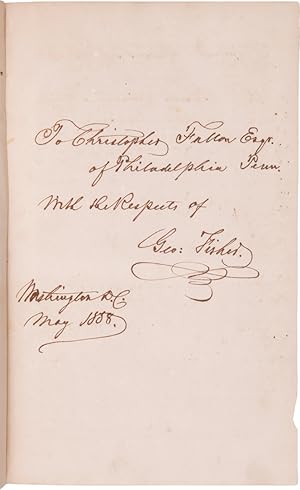 To Christopher Fallon Esqr.
of Philadelphia Penn.
With the Respects of
Geo: Fisher.
Washington D.C.
May 1858.